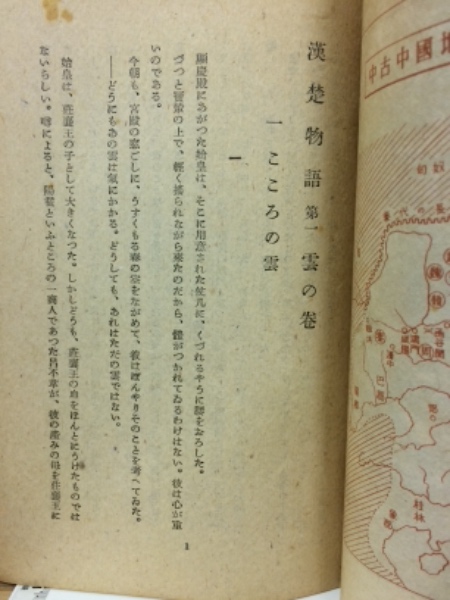 漢楚物語 第一 雲の巻
一 こころの雲
一
顯慶殿にあがつた始皇は、そこに用意された几に、くづれるやうに腰をおろした。
づつと輦の上で、輕く搖られながら來たのだから、體がつかれてゐるわけはない。彼は心が重
いのである。
今朝も、宮殿の窓ごしに、うすくもる春の空をながめて、彼はぼんやりそのことを考へてゐた。
——どうにもあの雲は氣にかかる。どうしても、あれはただの雲ではない。
始皇は、莊襄王の子として大きくなつた。しかしどうも、莊襄王の血をほんとにうけたものでは
ないらしい。噂によると、陽翟といふところの一商人であつた呂不韋が、彼の産みの母を莊襄王に
1
中古中國地
匈奴
桂林
巴